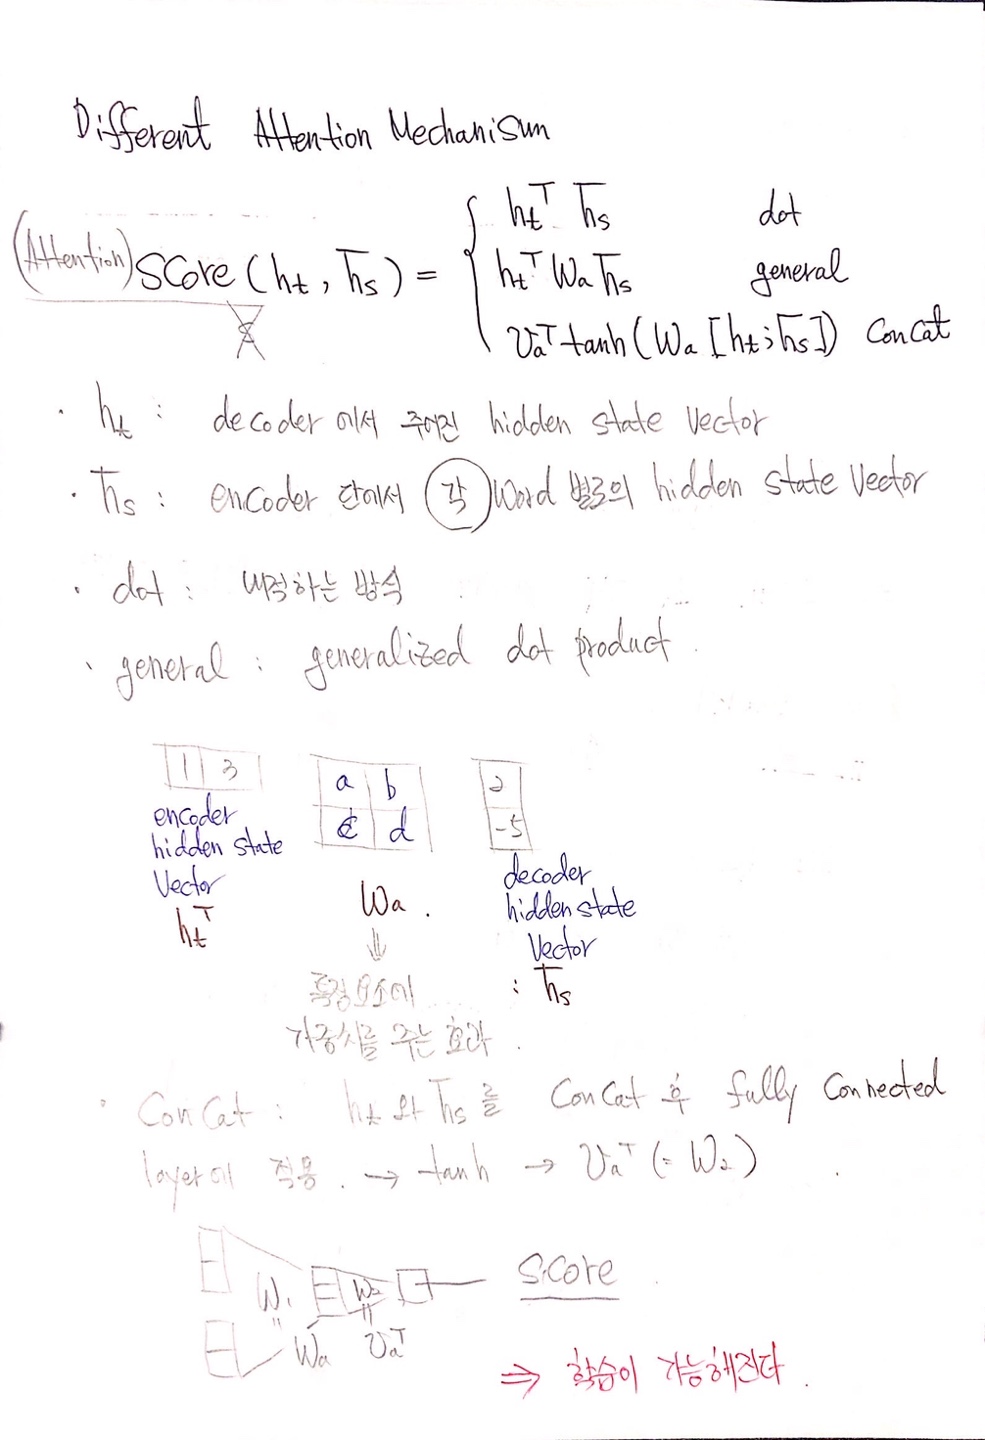 Different Attention Mechanisum
(Attention) Score(hₜ, h̄ₛ) = { hₜᵀ h̄ₛ dot
hₜᵀ Wₐ h̄ₛ general
vₐᵀ tanh(Wₐ[hₜ;h̄ₛ]) Concat
· hₜ : decoder 에서 주어진 hidden state vector
· h̄ₛ : encoder 단에서 각 Word 별로의 hidden state Vector
· dot : 내적하는 방식
· general : generalized dot product.
1 3 a b 2
c d -5
encoder hidden state Vector hₜᵀ
Wₐ.
decoder hidden state Vector : h̄ₛ
⇓
특정요소에
가중치를 주는 효과.
· Concat : hₜ와 h̄ₛ를 Concat 후 fully Connected
layer에 적용. → tanh → vₐᵀ (= W₂)
W₁ W₂ Score
= Wₐ = vₐᵀ
⇒ 학습이 가능해진다.